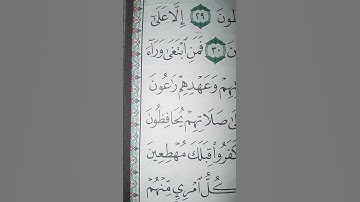 ظُونَ ٢٩ إِلَّا عَلَىٰٓ
نَ ٣٠ فَمَنِ ٱبۡتَغَىٰ وَرَآءَ
تِهِمۡ وَعَهۡدِهِمۡ رَٰعُونَ
ىٰ صَلَاتِهِمۡ يُحَافِظُونَ
كَفَرُواْ قِبَلَكَ مُهۡطِعِينَ
كُلُّ ٱمۡرِيٕٖ مِّنۡهُمۡ